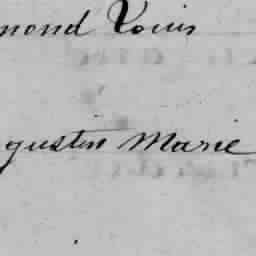 mond Louis
gustin Marie